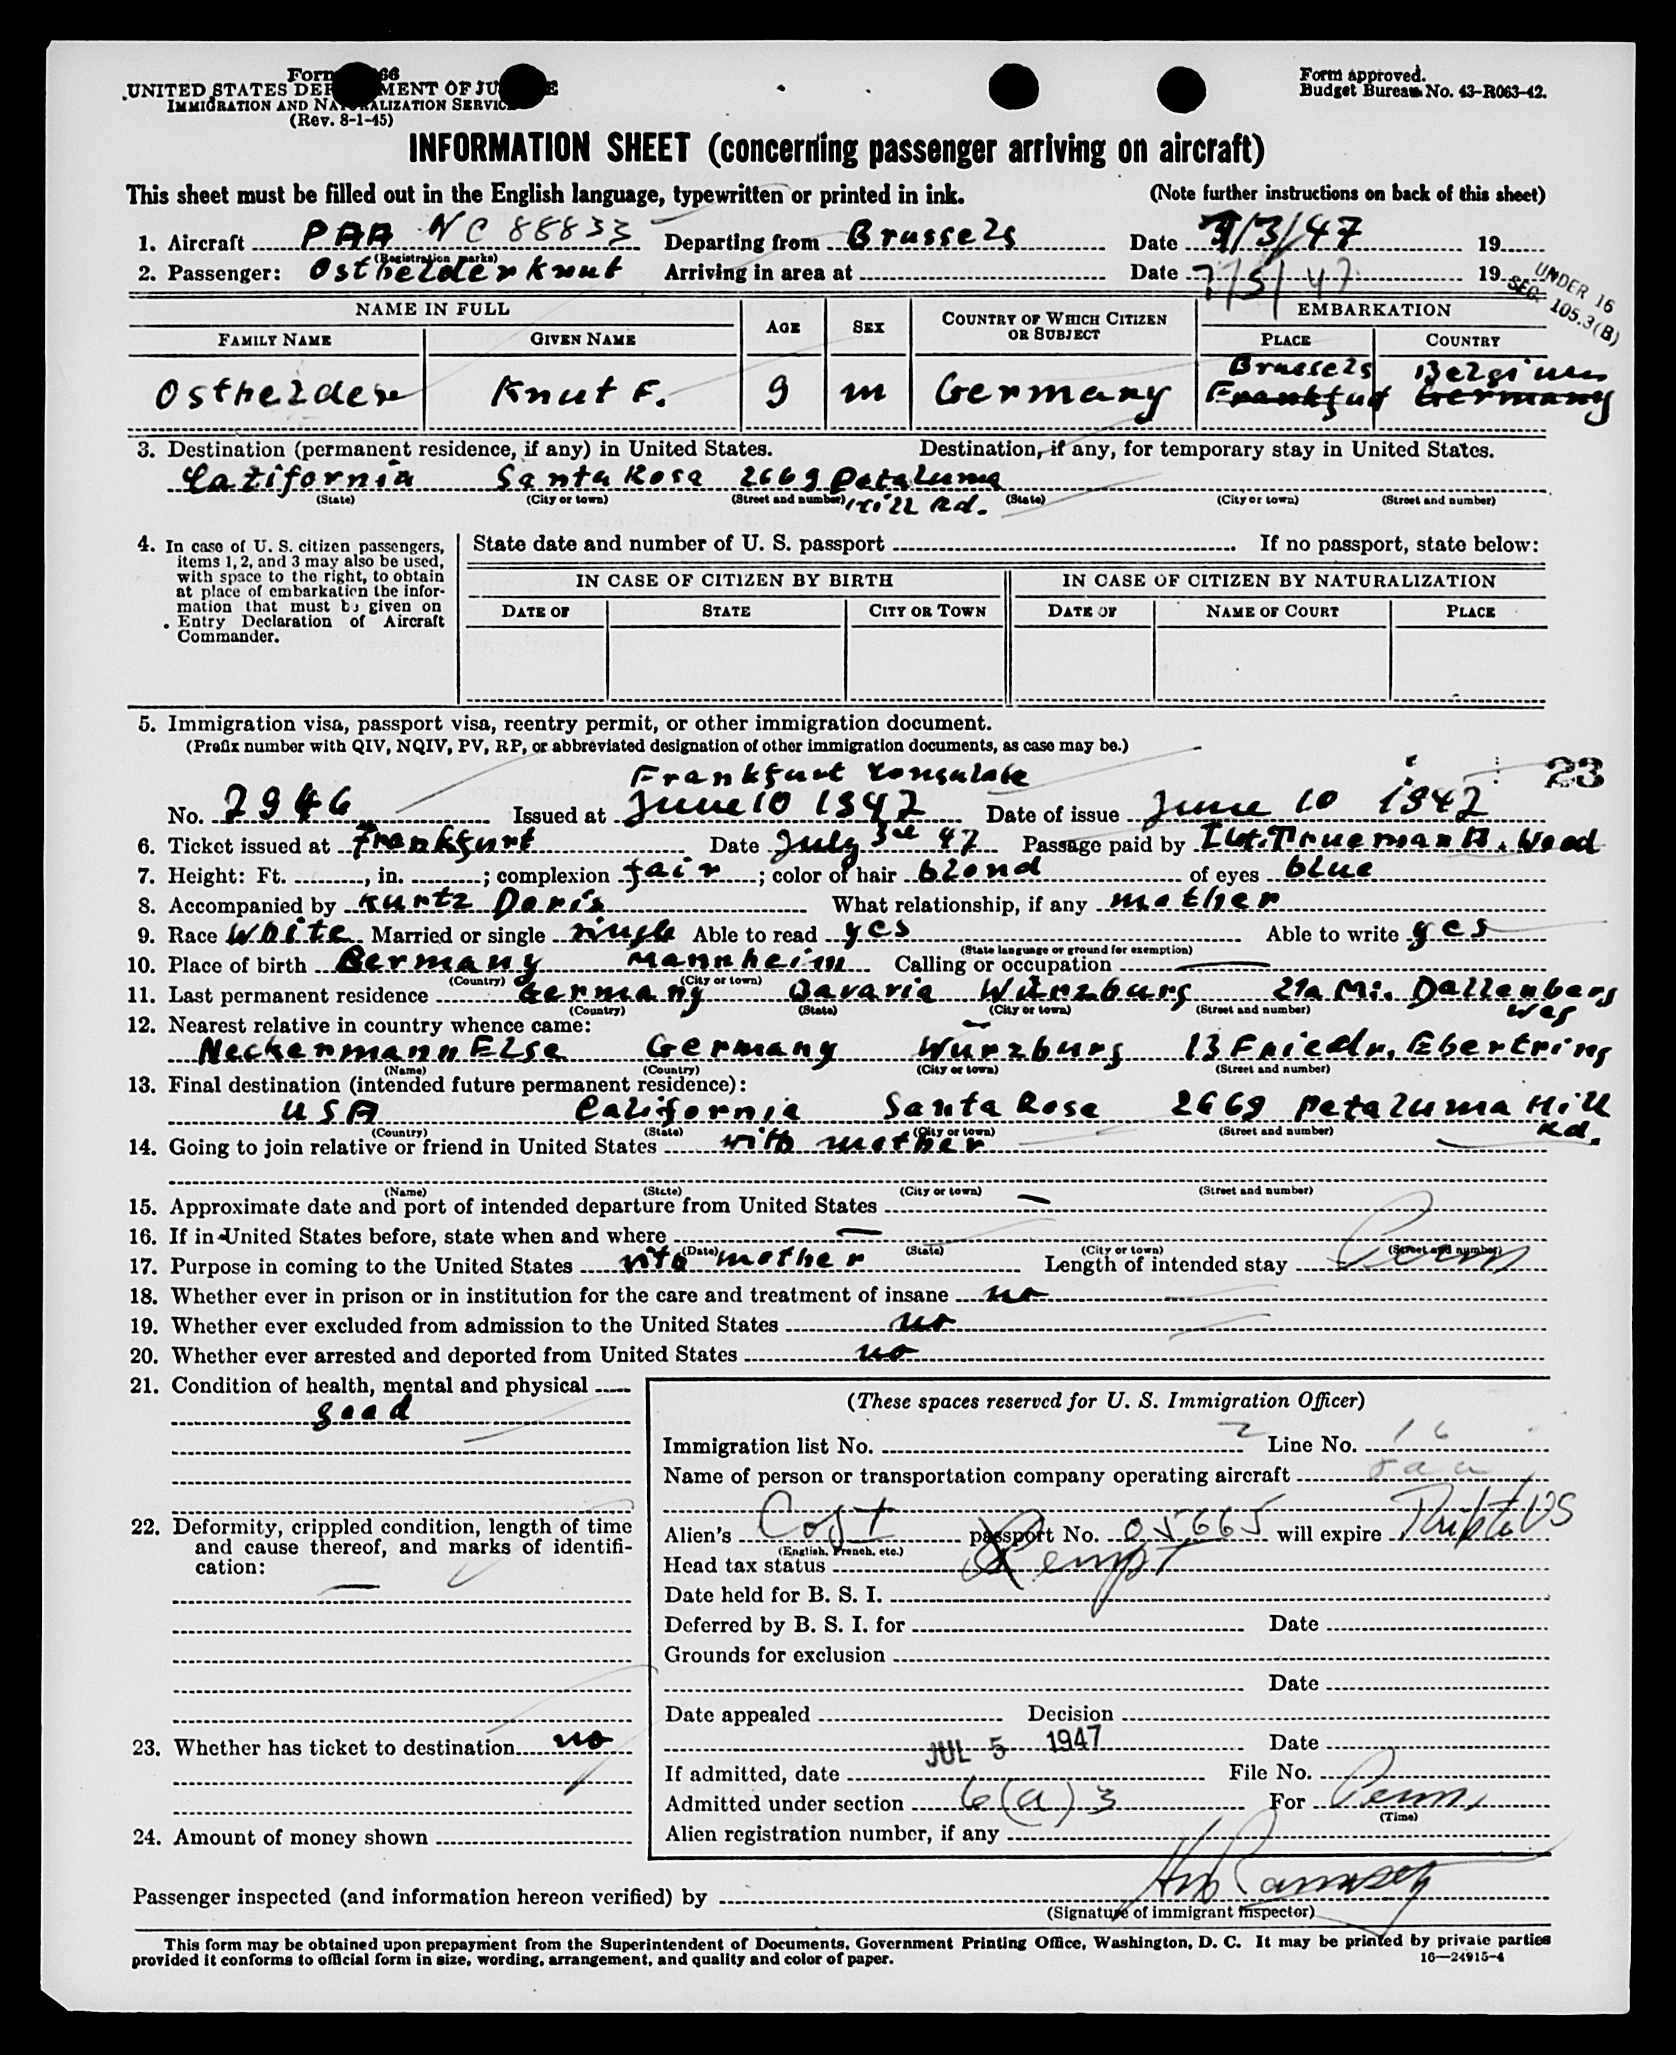 Form 66
UNITED STATES DEPARTMENT OF JUSTICE
IMMIGRATION AND NATURALIZATION SERVICE
(Rev. 8-1-45)
Form approved.
Budget Bureau No. 43-R063-42.
INFORMATION SHEET (concerning passenger arriving on aircraft)
This sheet must be filled out in the English language, typewritten or printed in ink. (Note further instructions on back of this sheet)
1. Aircraft PAA NC 88833 Departing from Brussels Date 7/3/47 19
(Registration marks)
2. Passenger: Osthelder Knut Arriving in area at Date 7/5/47 19
UNDER 16
SEC. 105.3(B)
NAME IN FULL AGE SEX COUNTRY OF WHICH CITIZEN OR SUBJECT EMBARKATION
FAMILY NAME GIVEN NAME PLACE COUNTRY
Brussels Belgium
Osthelder Knut F. 9 m Germany Frankfurt Germany
3. Destination (permanent residence, if any) in United States. Destination, if any, for temporary stay in United States.
California Santa Rosa 2669 Petaluma
(State) (City or town) (Street and number) Hill Rd. (State) (City or town) (Street and number)
4. In case of U. S. citizen passengers, items 1, 2, and 3 may also be used, with space to the right, to obtain at place of embarkation the information that must be given on Entry Declaration of Aircraft Commander.
State date and number of U. S. passport . If no passport, state below:
IN CASE OF CITIZEN BY BIRTH IN CASE OF CITIZEN BY NATURALIZATION
DATE OF STATE CITY OR TOWN DATE OF NAME OF COURT PLACE
5. Immigration visa, passport visa, reentry permit, or other immigration document.
(Prefix number with QIV, NQIV, PV, RP, or abbreviated designation of other immigration documents, as case may be.)
Frankfurt Consulate 23
No. 2946 Issued at June 10 1947 Date of issue June 10 1947
6. Ticket issued at Frankfurt Date July 3rd 47 Passage paid by Lt. Trueman B. Wood
7. Height: Ft. , in. ; complexion fair ; color of hair blond of eyes blue
8. Accompanied by Kurtz Doris What relationship, if any mother
9. Race White Married or single single Able to read yes Able to write yes
(State language or ground for exemption)
10. Place of birth Germany Mannheim Calling or occupation —
(Country) (City or town)
11. Last permanent residence Germany Bavaria Würzburg 21a Mi. Dallenberg
(Country) (State) (City or town) (Street and number) Weg
12. Nearest relative in country whence came:
Neckermann Else Germany Würzburg 13 Friedr. Ebertring
(Name) (Country) (City or town) (Street and number)
13. Final destination (intended future permanent residence):
USA California Santa Rosa 2669 Petaluma Hill
(Country) (State) (City or town) (Street and number) Rd.
14. Going to join relative or friend in United States with mother
(Name) (State) (City or town) (Street and number)
15. Approximate date and port of intended departure from United States —
16. If in United States before, state when and where —
(Date) (State) (City or town) (Street and number)
17. Purpose in coming to the United States mother Length of intended stay Perm
18. Whether ever in prison or in institution for the care and treatment of insane no
19. Whether ever excluded from admission to the United States no
20. Whether ever arrested and deported from United States no
21. Condition of health, mental and physical
good
22. Deformity, crippled condition, length of time
and cause thereof, and marks of identifi-
cation:
—
23. Whether has ticket to destination no
24. Amount of money shown
(These spaces reserved for U. S. Immigration Officer)
Immigration list No. 2 Line No. 16
Name of person or transportation company operating aircraft paa
Alien's passport No. 05665 will expire
(English, French, etc.)
Head tax status Exempt
Date held for B. S. I.
Deferred by B. S. I. for Date
Grounds for exclusion
Date
Date appealed Decision
Date
If admitted, date JUL 5 1947 File No.
Admitted under section 6(a)3 For Perm
(Time)
Alien registration number, if any
Passenger inspected (and information hereon verified) by Ramsey
(Signature of immigrant inspector)
This form may be obtained upon prepayment from the Superintendent of Documents, Government Printing Office, Washington, D. C. It may be printed by private parties
provided it conforms to official form in size, wording, arrangement, and quality and color of paper. 16—24915-4